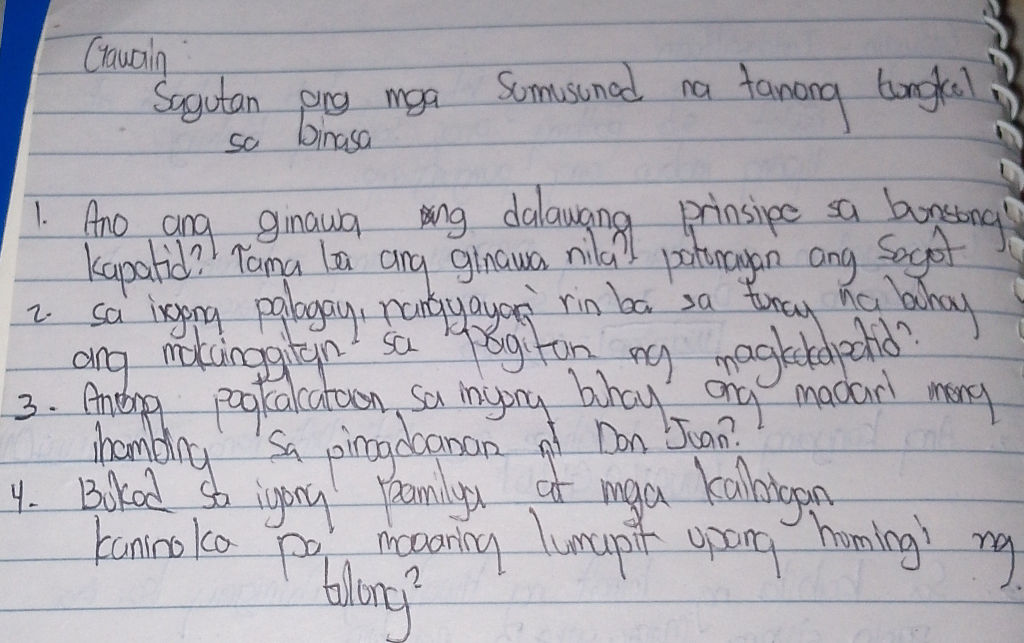 Gawain:
Sagutan ang mga Sumusunod na tanong tungkol
sa binasa
1. Ano ang ginawa ng dalawang prinsipe sa bunsong
kapatid? Tama ba ang ginawa nila? patunayan ang Sagot
2. sa iyong palagay, nangyayari rin ba sa tunay na buhay
ang makainggitan sa pagitan ng magkakapatid?
3. Anong pagkakataon sa inyong buhay ang madari mong
ihambing sa pinagdaanan ni Don Juan?
4. Bukod sa iyong pamilya at mga kaibigan
kanino ka pa maaaring lumapit upang humingi ng
tulong?